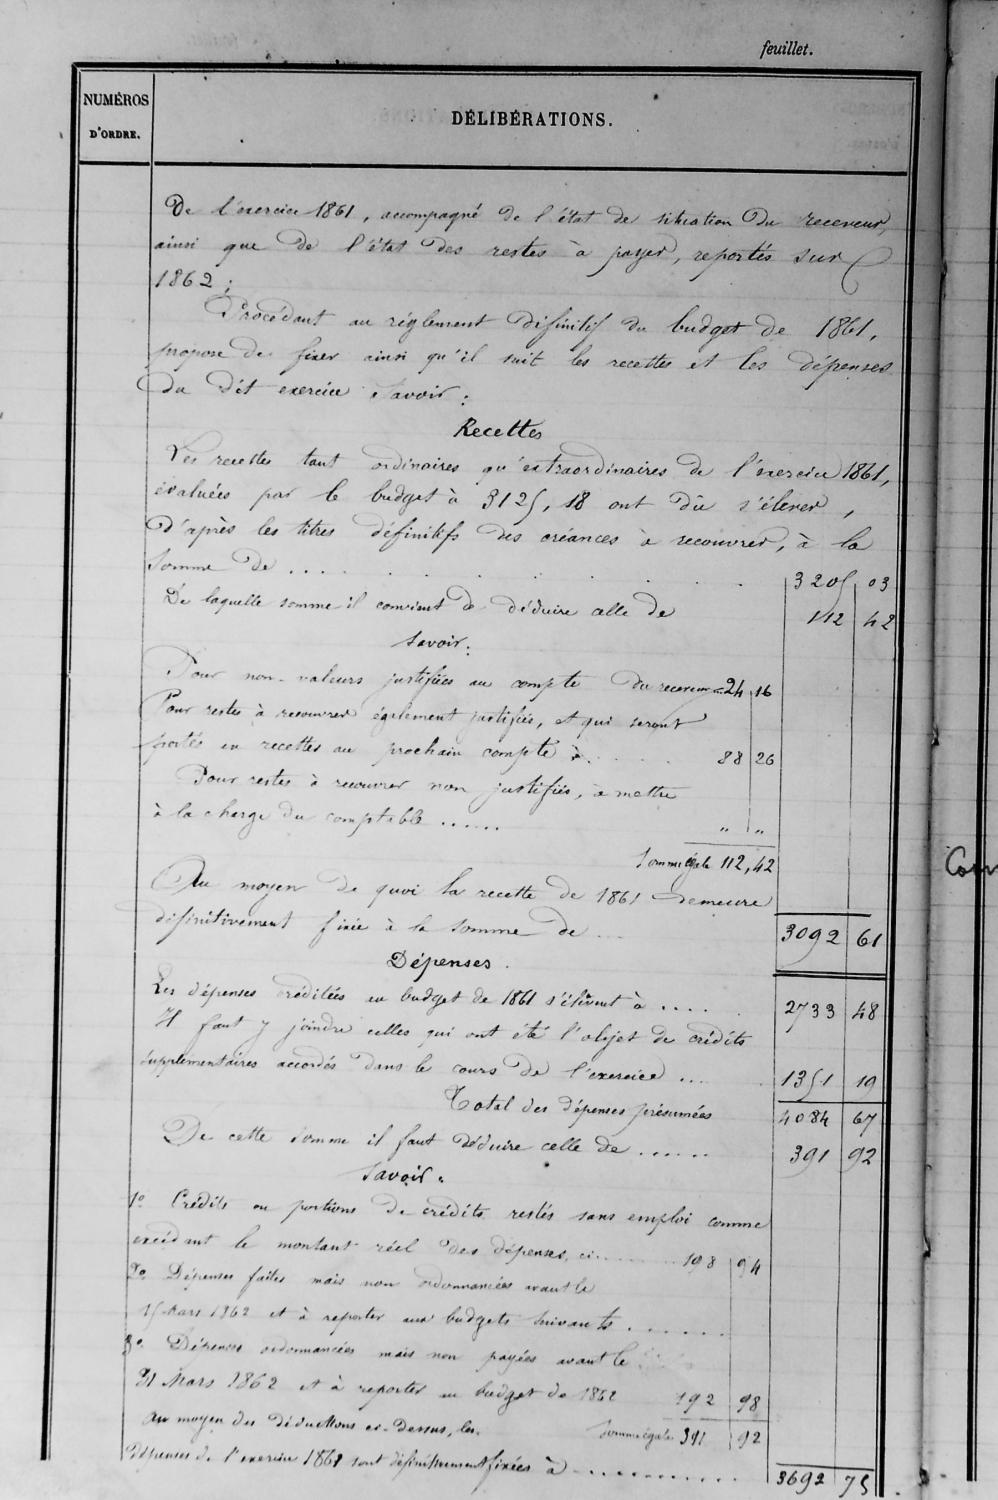 feuillet.
NUMÉROS
D'ORDRE.
DÉLIBÉRATIONS.
De l'exercice 1861, accompagné de l'état de situation du receveur,
ainsi que de l'état des restes à payer, reportés sur
1862 ;
Procédant au réglement définitif du budget de 1861,
propose de fixer ainsi qu'il suit les recettes et les dépenses
du dit exercice Savoir :
Recettes
Les recettes tant ordinaires qu'extraordinaires de l'exercice 1861,
évaluées par le budget à 3125, 18 ont dû s'élever,
d'après les titres définitifs des créances à recouvrer, à la
Somme de .... 3205 03
De laquelle somme il convient de déduire celle de 112 42
Savoir :
Pour non-valeurs justifiées au compte du receveur 24, 16
Pour restes à recouvrer également justifiés, et qui seront
portés en recettes au prochain compte à ..... 88 26
Pour restes à recouvrer non justifiés, à mettre
à la charge du comptable ...... " "
Somme égale 112, 42
Au moyen de quoi la recette de 1861 demeure
définitivement fixée à la somme de ... 3092 61
Dépenses.
Les dépenses créditées au budget de 1861 s'élèvent à .... 2733 48
Il faut y joindre celles qui ont été l'objet de crédits
supplémentaires accordés dans le cours de l'exercice ... 1351 19
Total des dépenses présumées 4084 67
De cette somme il faut déduire celle de ...... 391 92
Savoir :
1º Crédits ou portions de crédits restés sans emploi comme
excédant le montant réel des dépenses, ci ...... 198 94
2º Dépenses faites mais non ordonnancées avant le
15 Mars 1862 et à reporter aux budgets suivants ......
3º Dépenses ordonnancées mais non payées avant le
31 Mars 1862 et à reporter au budget de 1862 192 98
Au moyen des déductions ci-dessus, les Somme égale 391 92
dépenses de l'exercice 1861 sont définitivement fixées à ............ 3692 75